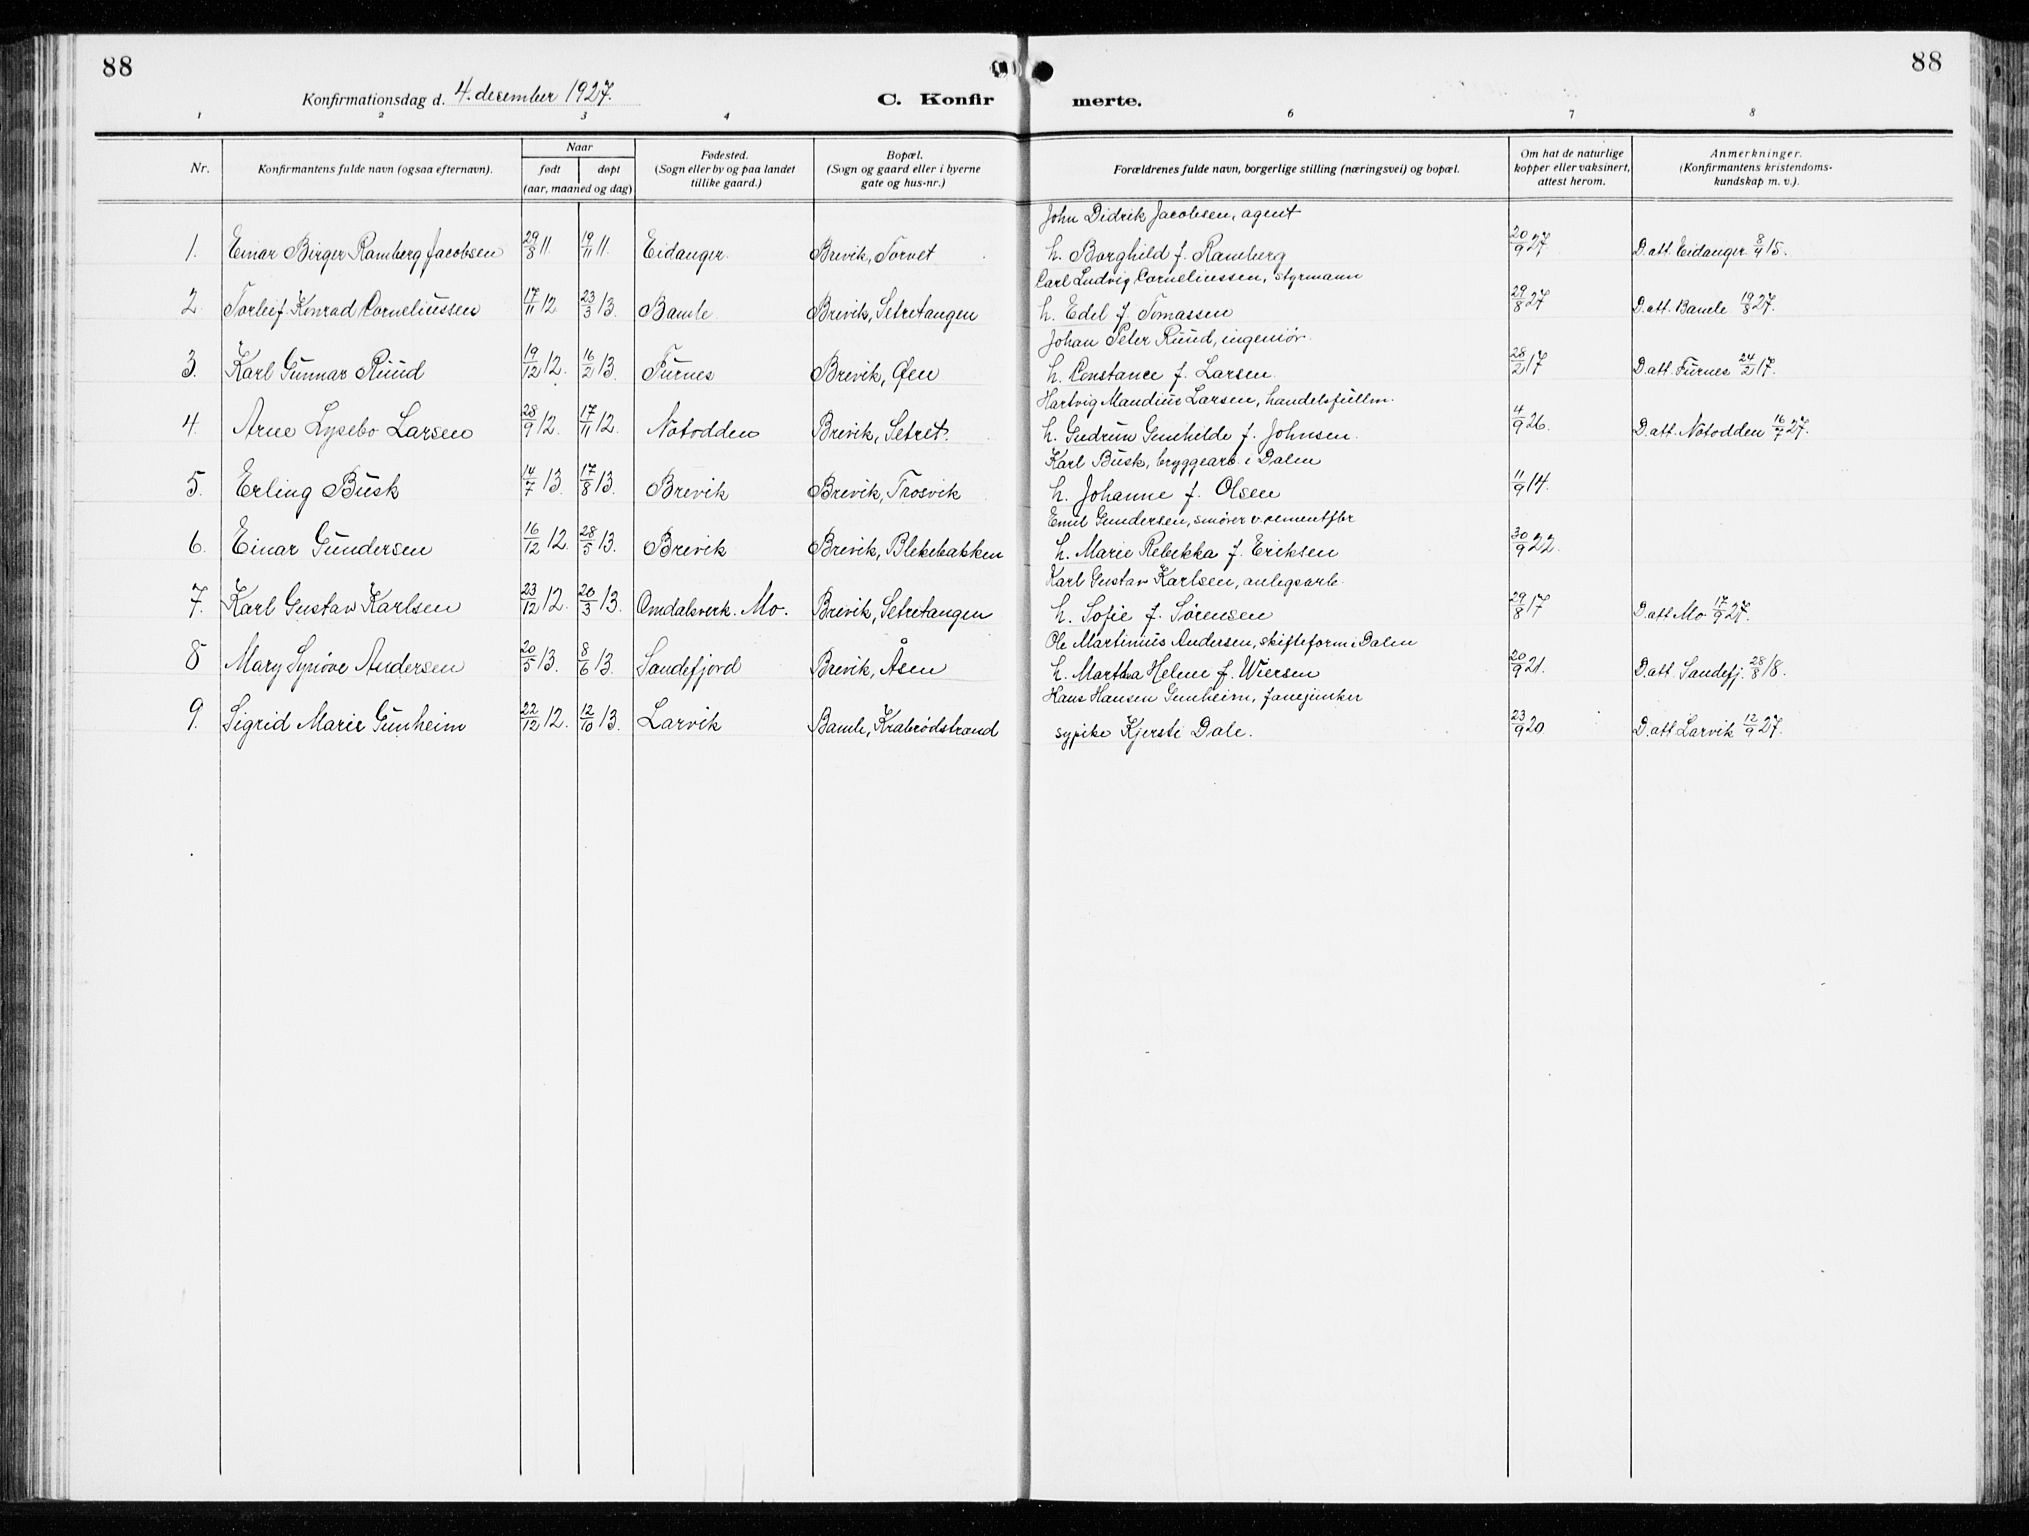 88
88
Konfirmationsdag d. 4. desember 1927.
C. Konfir merte.
1 2 3 4 6 7 8
Nr.
Konfirmantens fulde navn (ogsaa efternavn).
Naar
født døpt
(aar, maaned og dag)
Fødested.
(Sogn eller by og paa landet
tillike gaard.)
Bopæl.
(Sogn og gaard eller i byerne
gate og hus-nr.)
Forældrenes fulde navn, borgerlige stilling (næringsvei) og bopæl.
Om hat de naturlige
kopper eller vaksinert,
attest herom.
Anmerkninger.
(Konfirmantens kristendoms-
kundskap m. v.).
John Didrik Jacobsen, agent
1. Einar Birger Ramberg Jacobsen 29/8 11. 19/11 11. Eidanger. Brevik, Torvet h. Borghild f. Ramberg 20/9 27 D. att. Eidanger 8/4 15.
Carl Ludvig Corneliussen, styrmann
2. Torleif Konrad Corneliussen 17/11 12 23/3 13. Bamle Brevik, Setretangen h. Edel f. Tomassen 29/8 27 D. att. Bamle 19/8 27.
Johan Peter Ruud, ingeniør.
3. Karl Gunnar Ruud 19/12 12. 16/2 13. Furnes Brevik, Øen h. Constance f. Larsen. 28/2 17 D. att. Furnes 24/2 17.
Hartvig Mandius Larsen, handelsfullm.
4. Arne Lysebo Larsen 28/9 12. 17/11 12. Notodden Brevik, Setret. h. Gudrun Gunhilde f. Johnsen. 4/9 26. D. att. Notodden 16/7 27.
Karl Busk, bryggearb. i Dalen
5. Erling Busk 14/7 13. 17/8 13. Brevik Brevik, Trosvik h. Johanne f. Olsen 11/9 14.
Emil Gundersen, smører v. cementfbr
6. Einar Gundersen 16/12 12. 28/5 13. Brevik Brevik, Blekebakken h. Marie Rebekka f. Eriksen 30/9 22.
Karl Gustav Karlsen, anlegsarb.
7. Karl Gustav Karlsen 23/12 12. 20/3 13. Omdalsverk. Mo. Brevik, Setretangen h. Sofie f. Sørensen 29/8 17 D. att. Mo 17/9 27.
Ole Martinius Andersen, skifteform. i Dalen
8 Mary Synøve Andersen 20/5 13. 8/6 13. Sandefjord Brevik, Åsen h. Martha Helene f. Wiersen 20/9 21. D. att. Sandefj. 28/8 18.
Hans Hansen Gunheim, fanejunker
9. Sigrid Marie Gunheim 22/12 12. 12/10 13. Larvik Bamle, Krabrødstrand sypike Kjersti Dale. 23/9 20 D. att. Larvik 12/9 27.